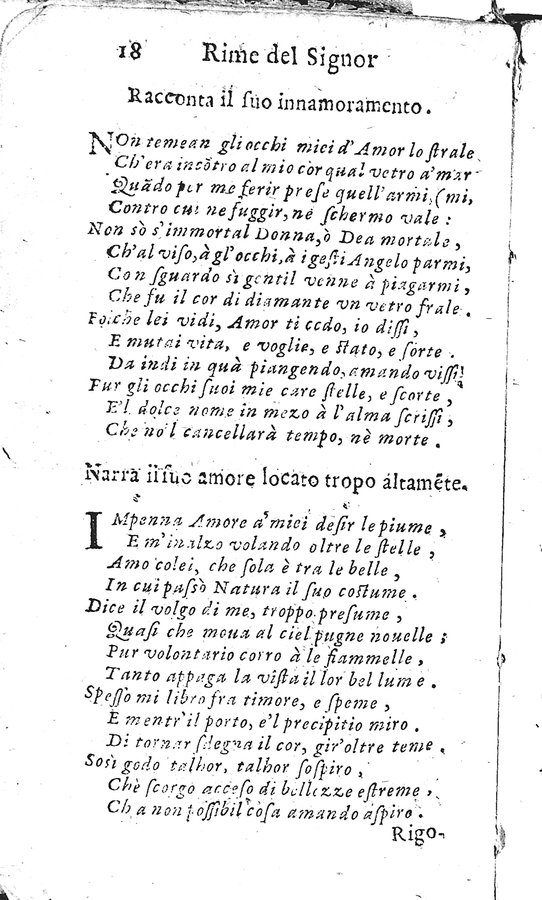 18 Rime del Signor
Racconta il ſuo innamoramento.
NOn temean gli occhi miei d'Amor lo ſtrale
Ch'era incõtro al mio cor qual vetro a' mar
Quãdo per me ferir preſe quell'armi, (mi,
Contro cui ne fuggir, nè ſchermo vale:
Non sò s'immortal Donna, ò Dea mortale,
Ch'al viſo, à gl'occhi, à i geſti Angelo parmi,
Con ſguardo sì gentil venne à piagarmi,
Che fu il cor di diamante vn vetro frale.
Poiche lei vidi, Amor ti cedo, io diſſi,
E mutai vita, e voglie, e ſtato, e ſorte.
Da indi in quà piangendo, amando viſſi!
Fur gli occhi ſuoi mie care ſtelle, e ſcorte,
E'l dolce nome in mezo à l'alma ſcriſſi,
Che no'l cancellarà tempo, nè morte.
Narra il ſuo amore locato tropo altamẽte.
IMpenna Amore a' miei deſir le piume,
E m'inalzo volando oltre le ſtelle,
Amo colei, che ſola è tra le belle,
In cui paſsò Natura il ſuo coſtume.
Dice il volgo di me, troppo preſume,
Quaſi che moua al ciel pugne nouelle;
Pur volontario corro à le fiammelle,
Tanto appaga la viſta il lor bel lume.
Speſſo mi libro fra timore, e ſpeme,
E mentr'il porto, e'l precipitio miro.
Di tornar ſdegna il cor, gir'oltre teme.
Sosì godo talhor, talhor ſoſpiro,
Chè ſcorgo acceſo di bellezze eſtreme,
Ch a non poſſibil coſa amando aſpiro.
Rigo-